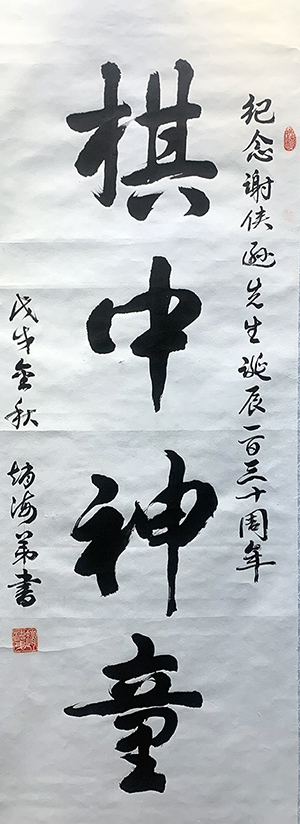 纪念谢侠逊先生诞辰一百三十周年
棋中神童
戊戌金秋 赵海弟书